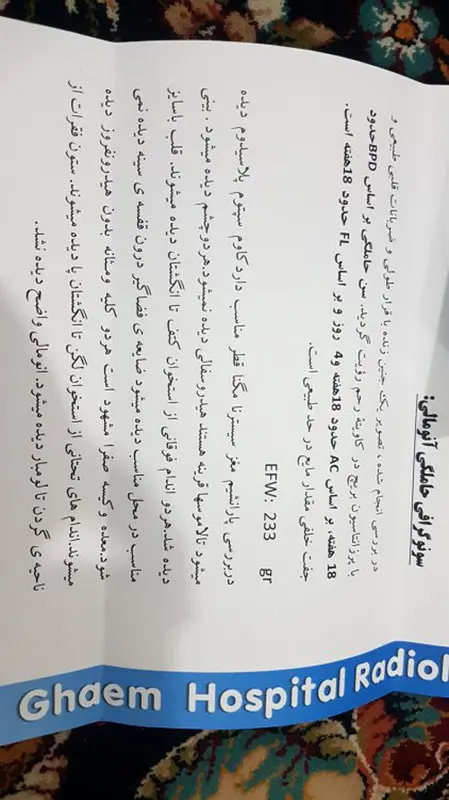 سونوگرافی حاملگی آنومالی:
در بررسی انجام شده ، تصویر یک جنین زنده با قرار طولی و ضربانات قلبی طبیعی و
با پرزانتاسیون بریچ در کاویته رحم رؤیت گردید. سن حاملگی بر اساس BPDحدود
18 هفته، بر اساس AC حدود 18هفته و4 روز و بر اساس FL حدود 18هفته است.
جفت خلفی مقدار مایع در حد طبیعی است.
EFW: 233 gr
دربررسی پارانشیم مغز سیسترنا مگنا قطر مناسب دارد.کاوم سپتوم پلاسیدوم دیده
میشود تالاموسها قرینه هستند هیدروسفالی دیده نمیشود.هردوچشم دیده میشود . بینی
دیده شد.هردو اندام فوقانی از استخوان کتف تا انگشتان دیده میشوند. قلب باسایز
مناسب در محل مناسب دیده میشود ضایعه ی فضاگیر درون قفسه ی سینه دیده نمی
شود.معده و کیسه صفرا مشهود است هردو کلیه ومثانه بدون هیدرونفروز دیده
میشوند.اندام های تحتانی از استخوان لگن تا انگشتان پا دیده میشوند. ستون فقرات از
ناحیه ی گردن تا لومبار دیده میشود. انومالی واضح دیده نشد.
Ghaem Hospital Radiol